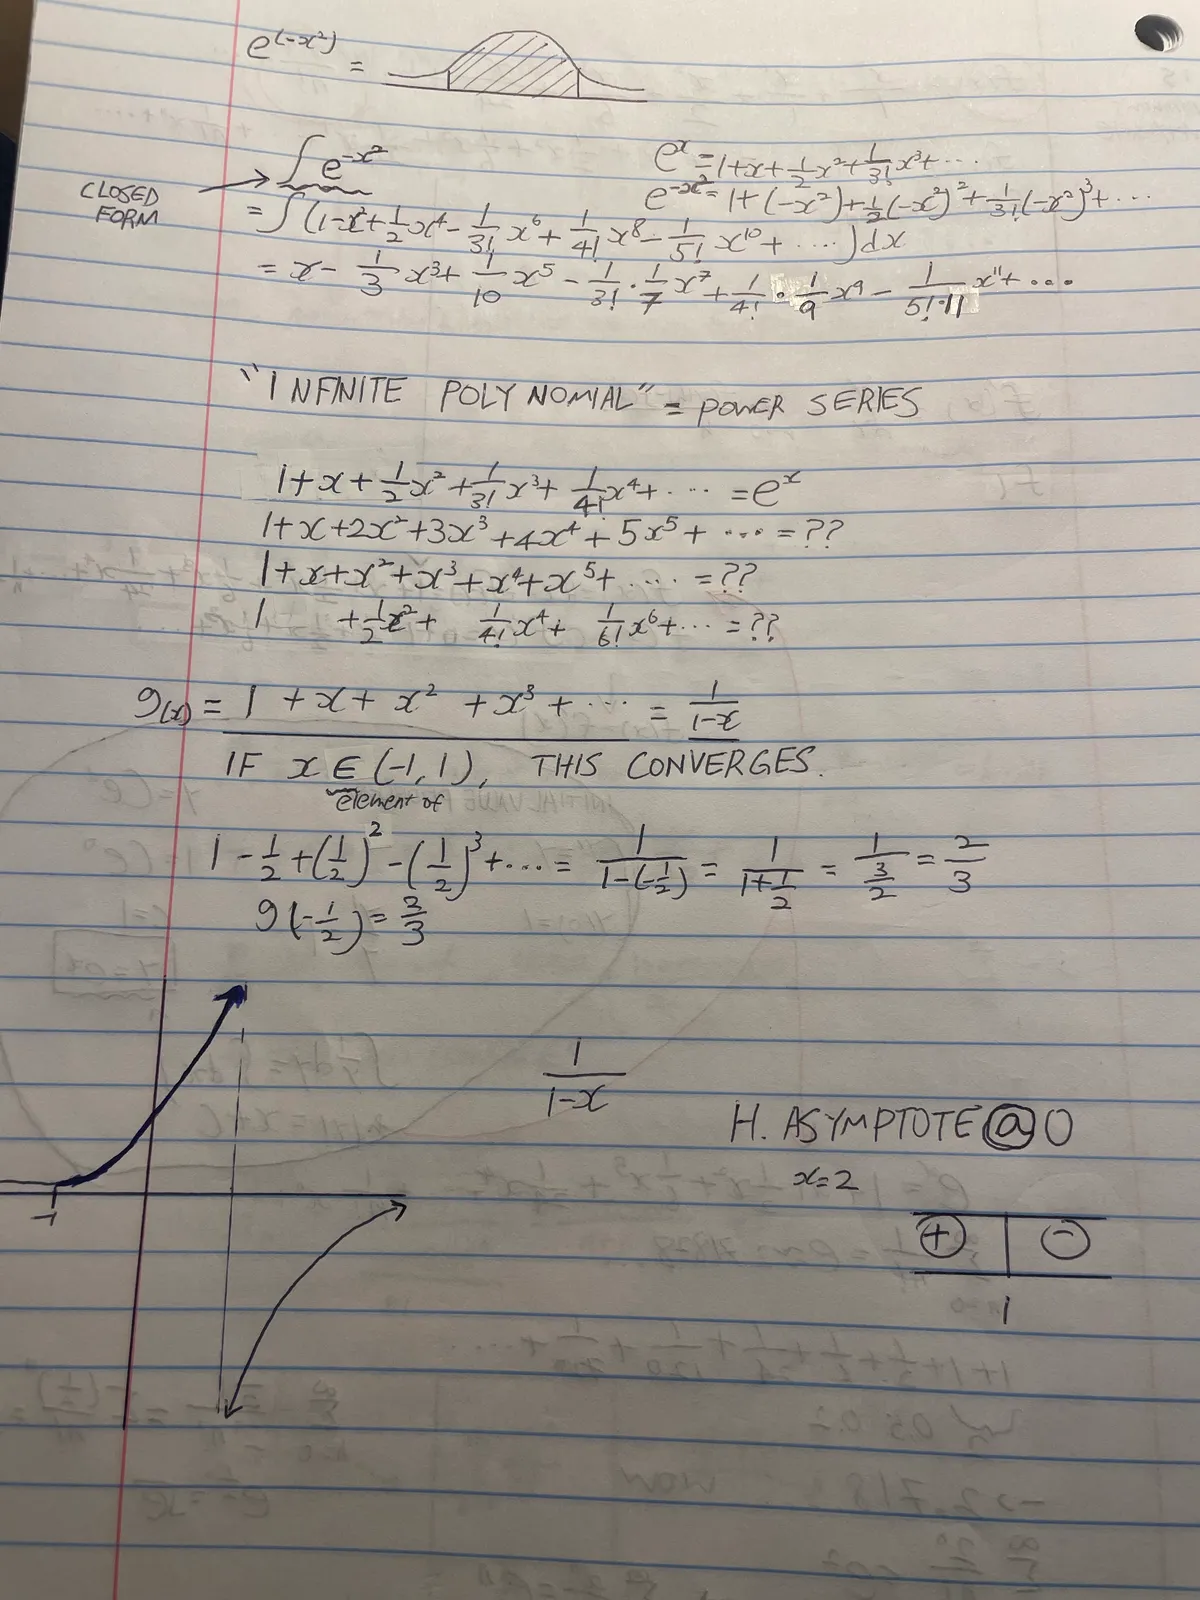 e^(-x²) =
∫ e^-x²
CLOSED FORM
e^x = 1+x+1/2 x²+1/3! x³+ ...
e^-x² = 1+(-x²)+1/2(-x²)²+1/3!(-x²)³+ ...
= ∫ (1-x²+1/2 x⁴-1/3! x⁶+1/4! x⁸-1/5! x¹⁰+ ....)dx
= x-1/3 x³+1/10 x⁵-1/3!·1/7 x⁷+1/4!·1/9 x⁹-1/5!·11 x¹¹+ ...
"INFINITE POLYNOMIAL" = POWER SERIES
1+x+1/2 x²+1/3! x³+1/4! x⁴+ ... = e^x
1+x+2x²+3x³+4x⁴+5x⁵+ ... = ??
1+x+x²+x³+x⁴+x⁵+ .... = ??
1 +1/2 x²+ 1/4! x⁴+ 1/6! x⁶+ ... = ??
g(x) = 1 + x + x² + x³ + ... = 1/1-x
IF x ∈ (-1,1), THIS CONVERGES.
element of
1-1/2+(1/2)²-(1/2)³+... = 1/1-(-1/2) = 1/1+1/2 = 1/(3/2) = 2/3
g(-1/2) = 2/3
1/1-x
H. ASYMPTOTE @ 0
x=2
-1
+ | -
1